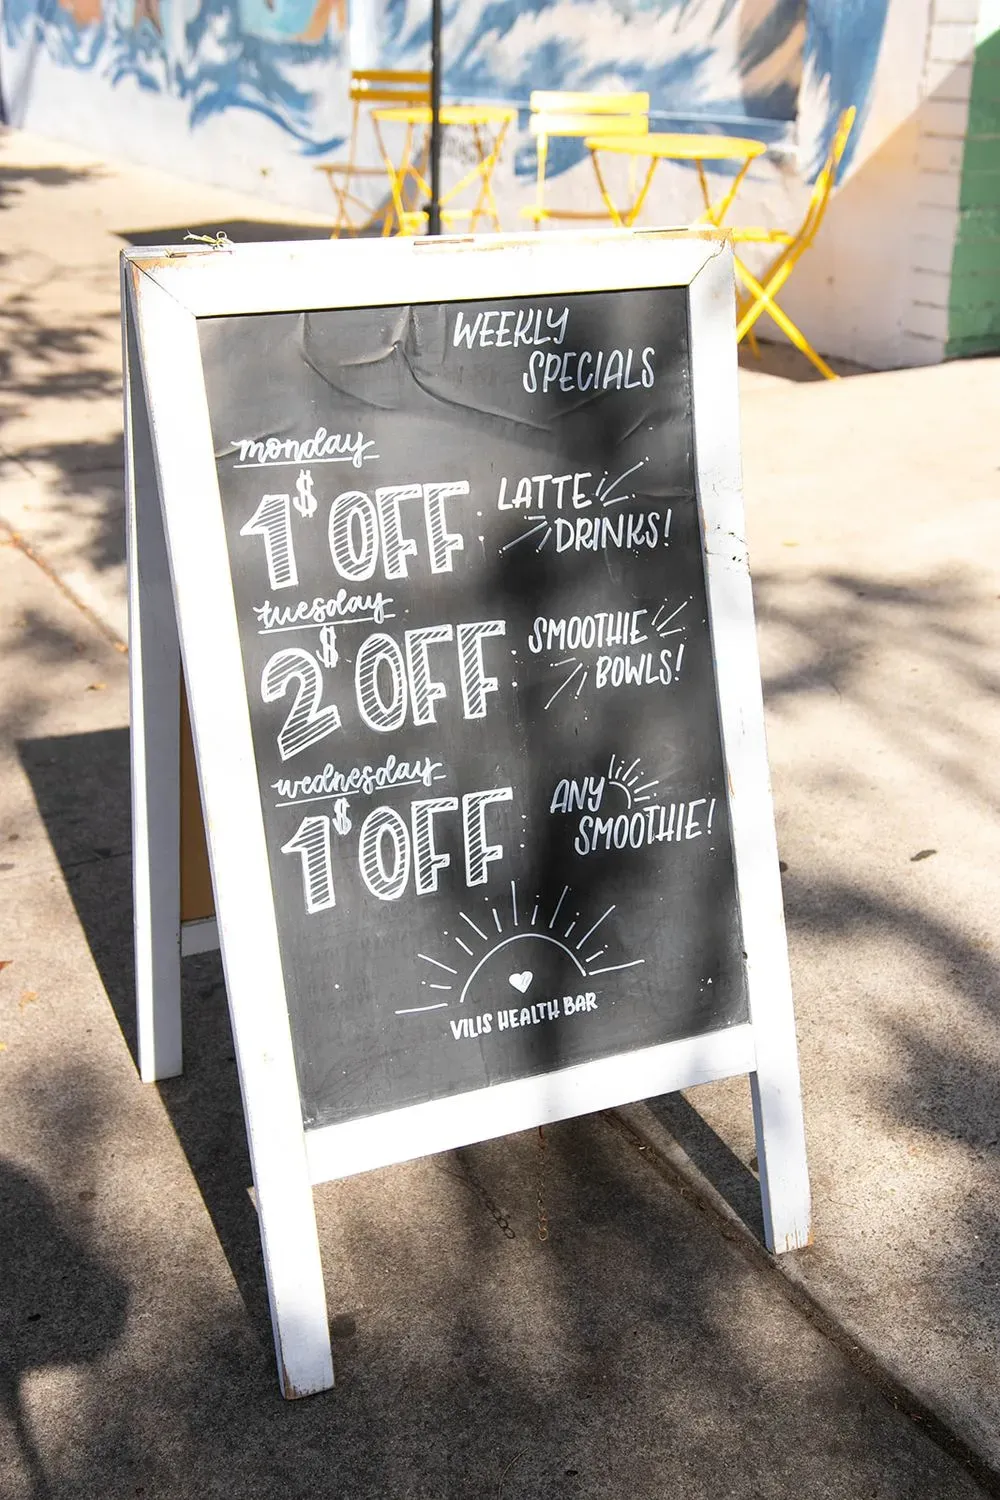 WEEKLY
SPECIALS
monday
1$ OFF
LATTE
DRINKS!
tuesday
2$ OFF
SMOOTHIE
BOWLS!
wednesday
1$ OFF
ANY
SMOOTHIE!
VILIS HEALTH BAR